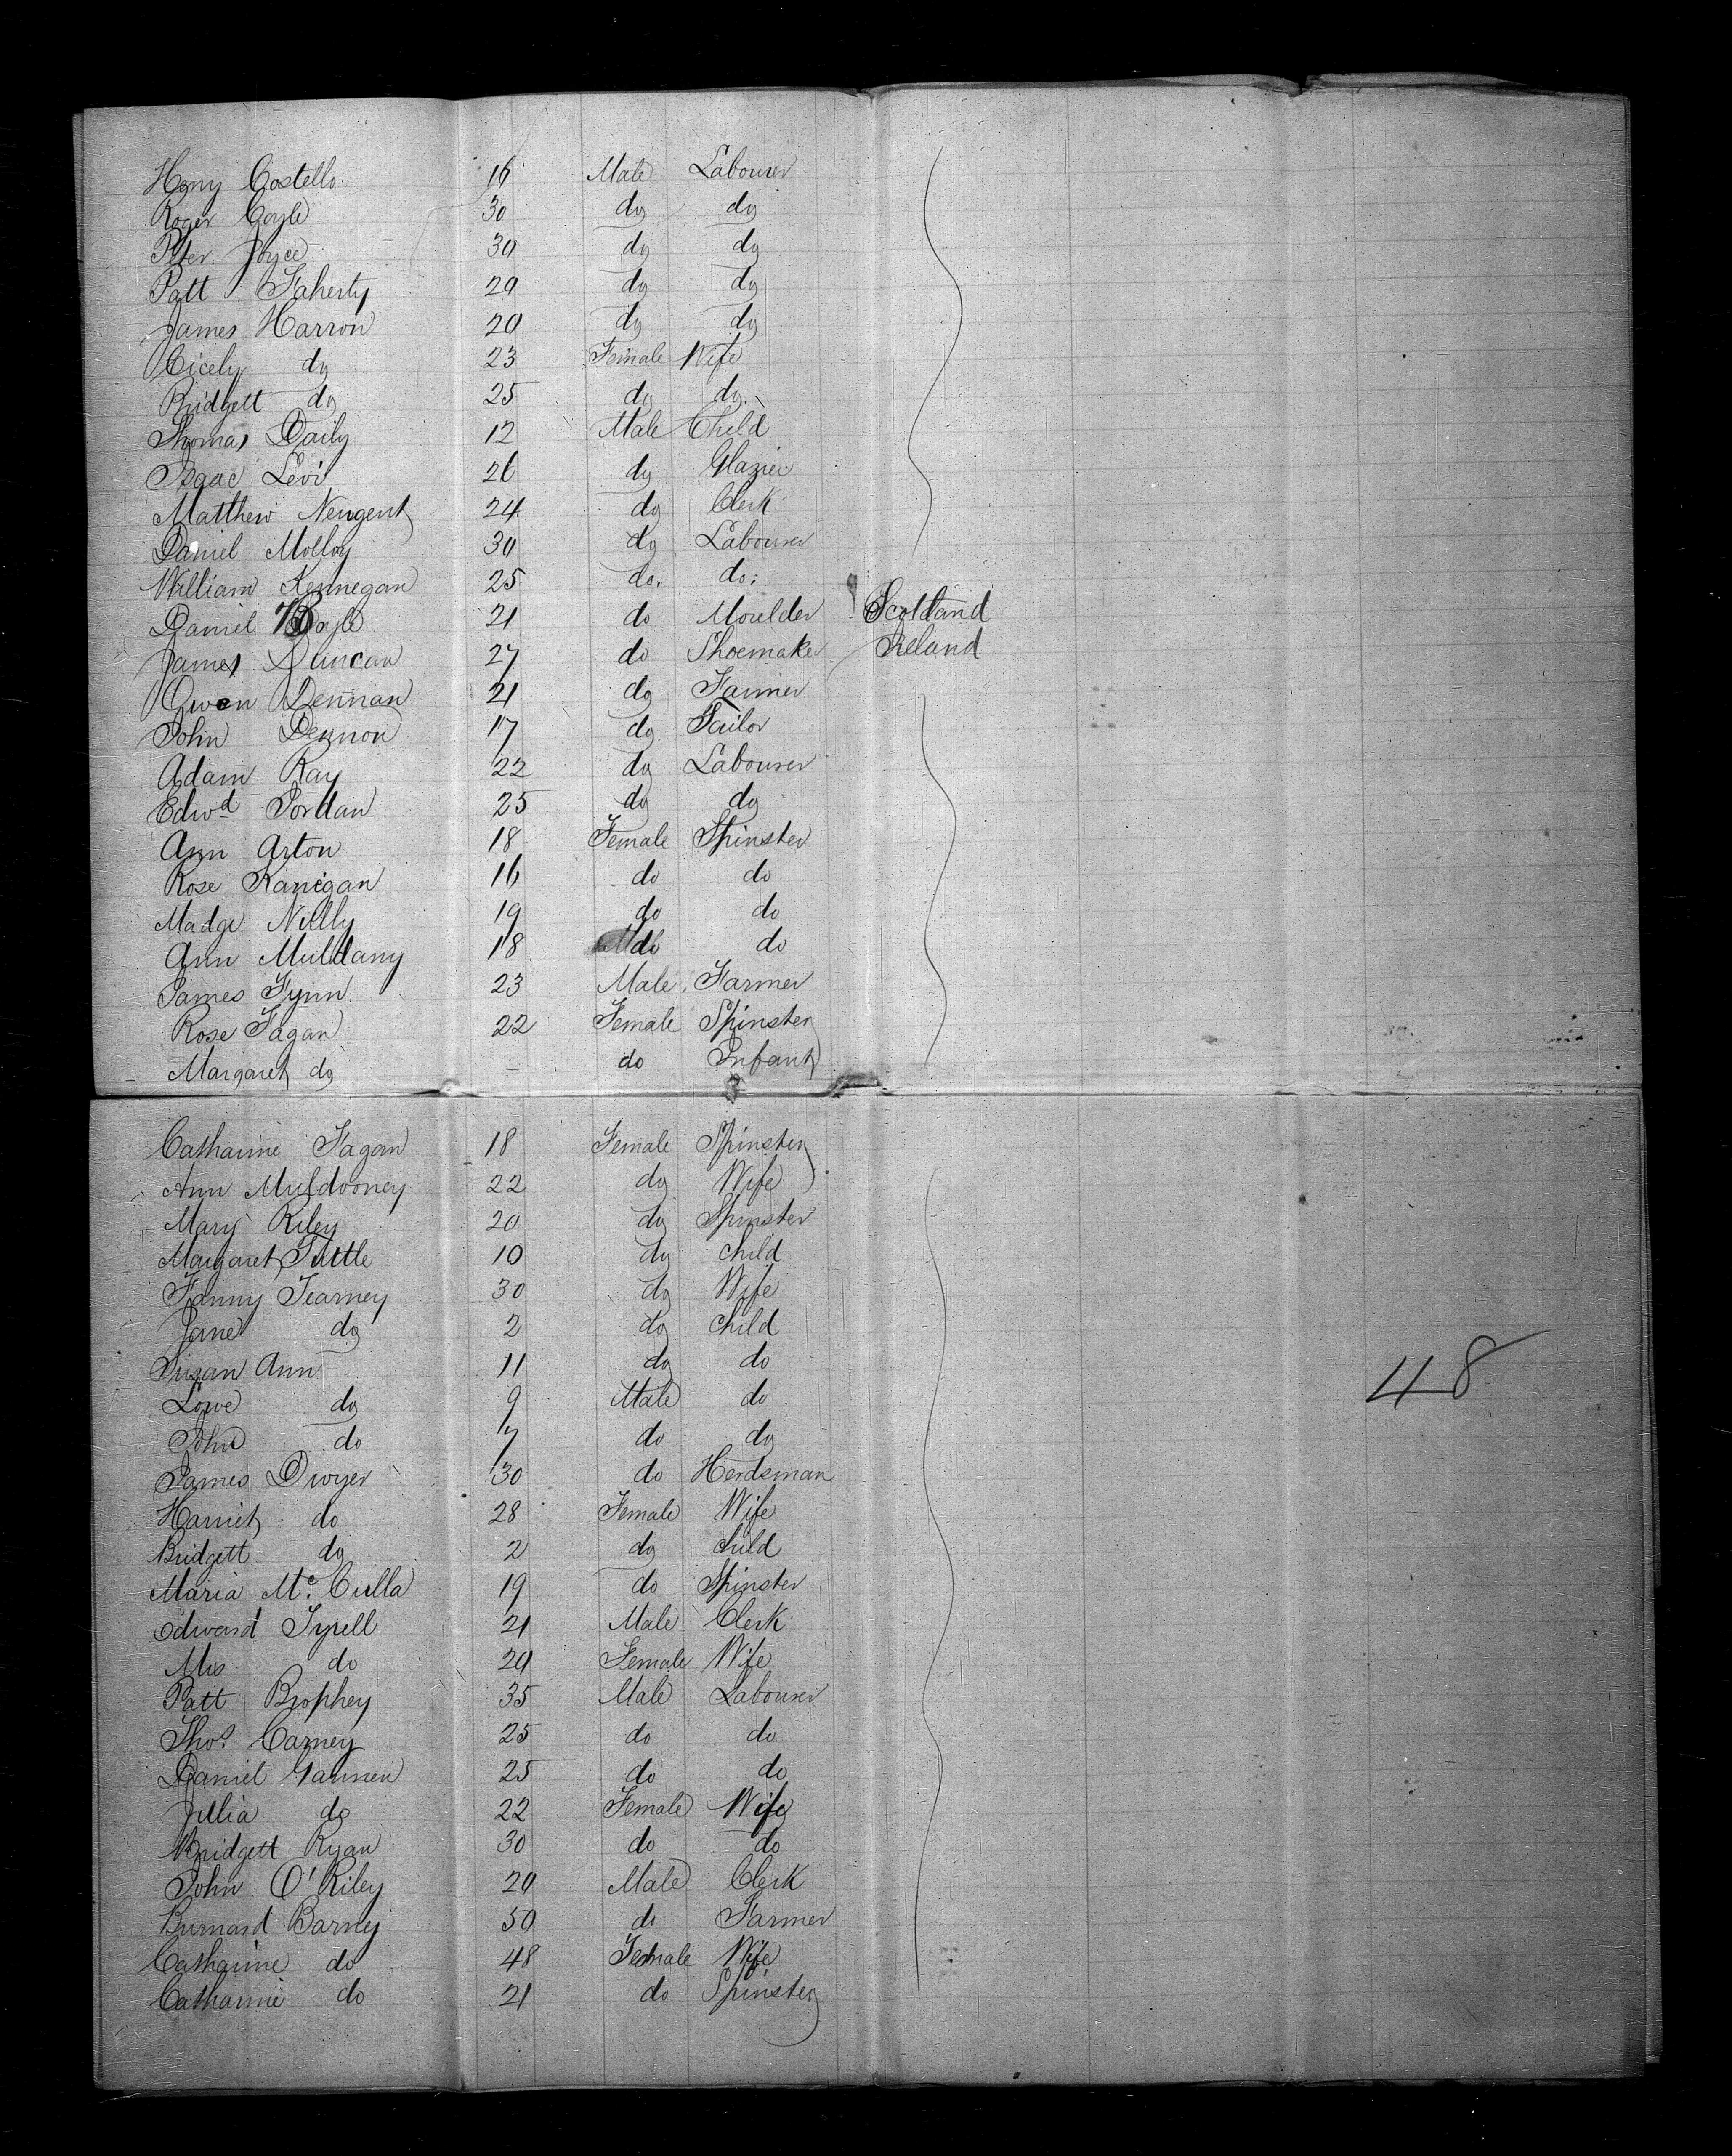 Heny Costello 16 Male Labourer
Roger Coyle 30 do do
Peter Joyce 30 do do
Patt Faherty 20 do do
James Harron 20 do do
Cicely do 23 Female Wife
Bridgett do 25 do do
Thomas Daily 12 Male Child
Isaac Levi 26 do Glazier
Matthew Neugent 24 do Clerk
Daniel Molloy 30 do Labourer
William Kennegan 25 do. do.
Daniel Boyle 21 do Moulder Scotland
James Duncan 27 do Shoemaker Ireland
Owen Dennan 21 do Farmer
John Dennon 17 do Tailor
Adam Ray 22 do Labourer
Edwd Jordan 25 do do
Ann Arton 18 Female Spinster
Rose Ranigan 16 do do
Madge Nelly 19 do do
Ann Muldany 18 do do
James Fynn 23 Male Farmer
Rose Fagan 22 Female Spinster
Margaret do - do Infant
Catharine Fagan 18 Female Spinster
Ann Muldooney 22 do Wife
Mary Riley 20 do Spinster
Margaret Tuttle 10 do child
Fanny Tearney 30 do Wife
Jane do 2 do child
Susan Ann 11 do do
Lowe do 9 Male do
John do 7 do do
James Dwyer 30 do Herdsman
Harriet do 28 Female Wife
Bridgett do 2 do child
Maria Mc Culla 19 do Spinster
Edward Tyrell 21 Male Clerk
Mrs do 20 Female Wife
Patt Brophey 35 Male Labourer
Thos. Carney 25 do do
Daniel Gannen 25 do do
Julia do 22 Female Wife
Bridgett Ryan 30 do do
John O'Riley 20 Male Clerk
Burnard Barney 50 do Farmer
Catharine do 48 Female Wife
Catharine do 21 do Spinster
48